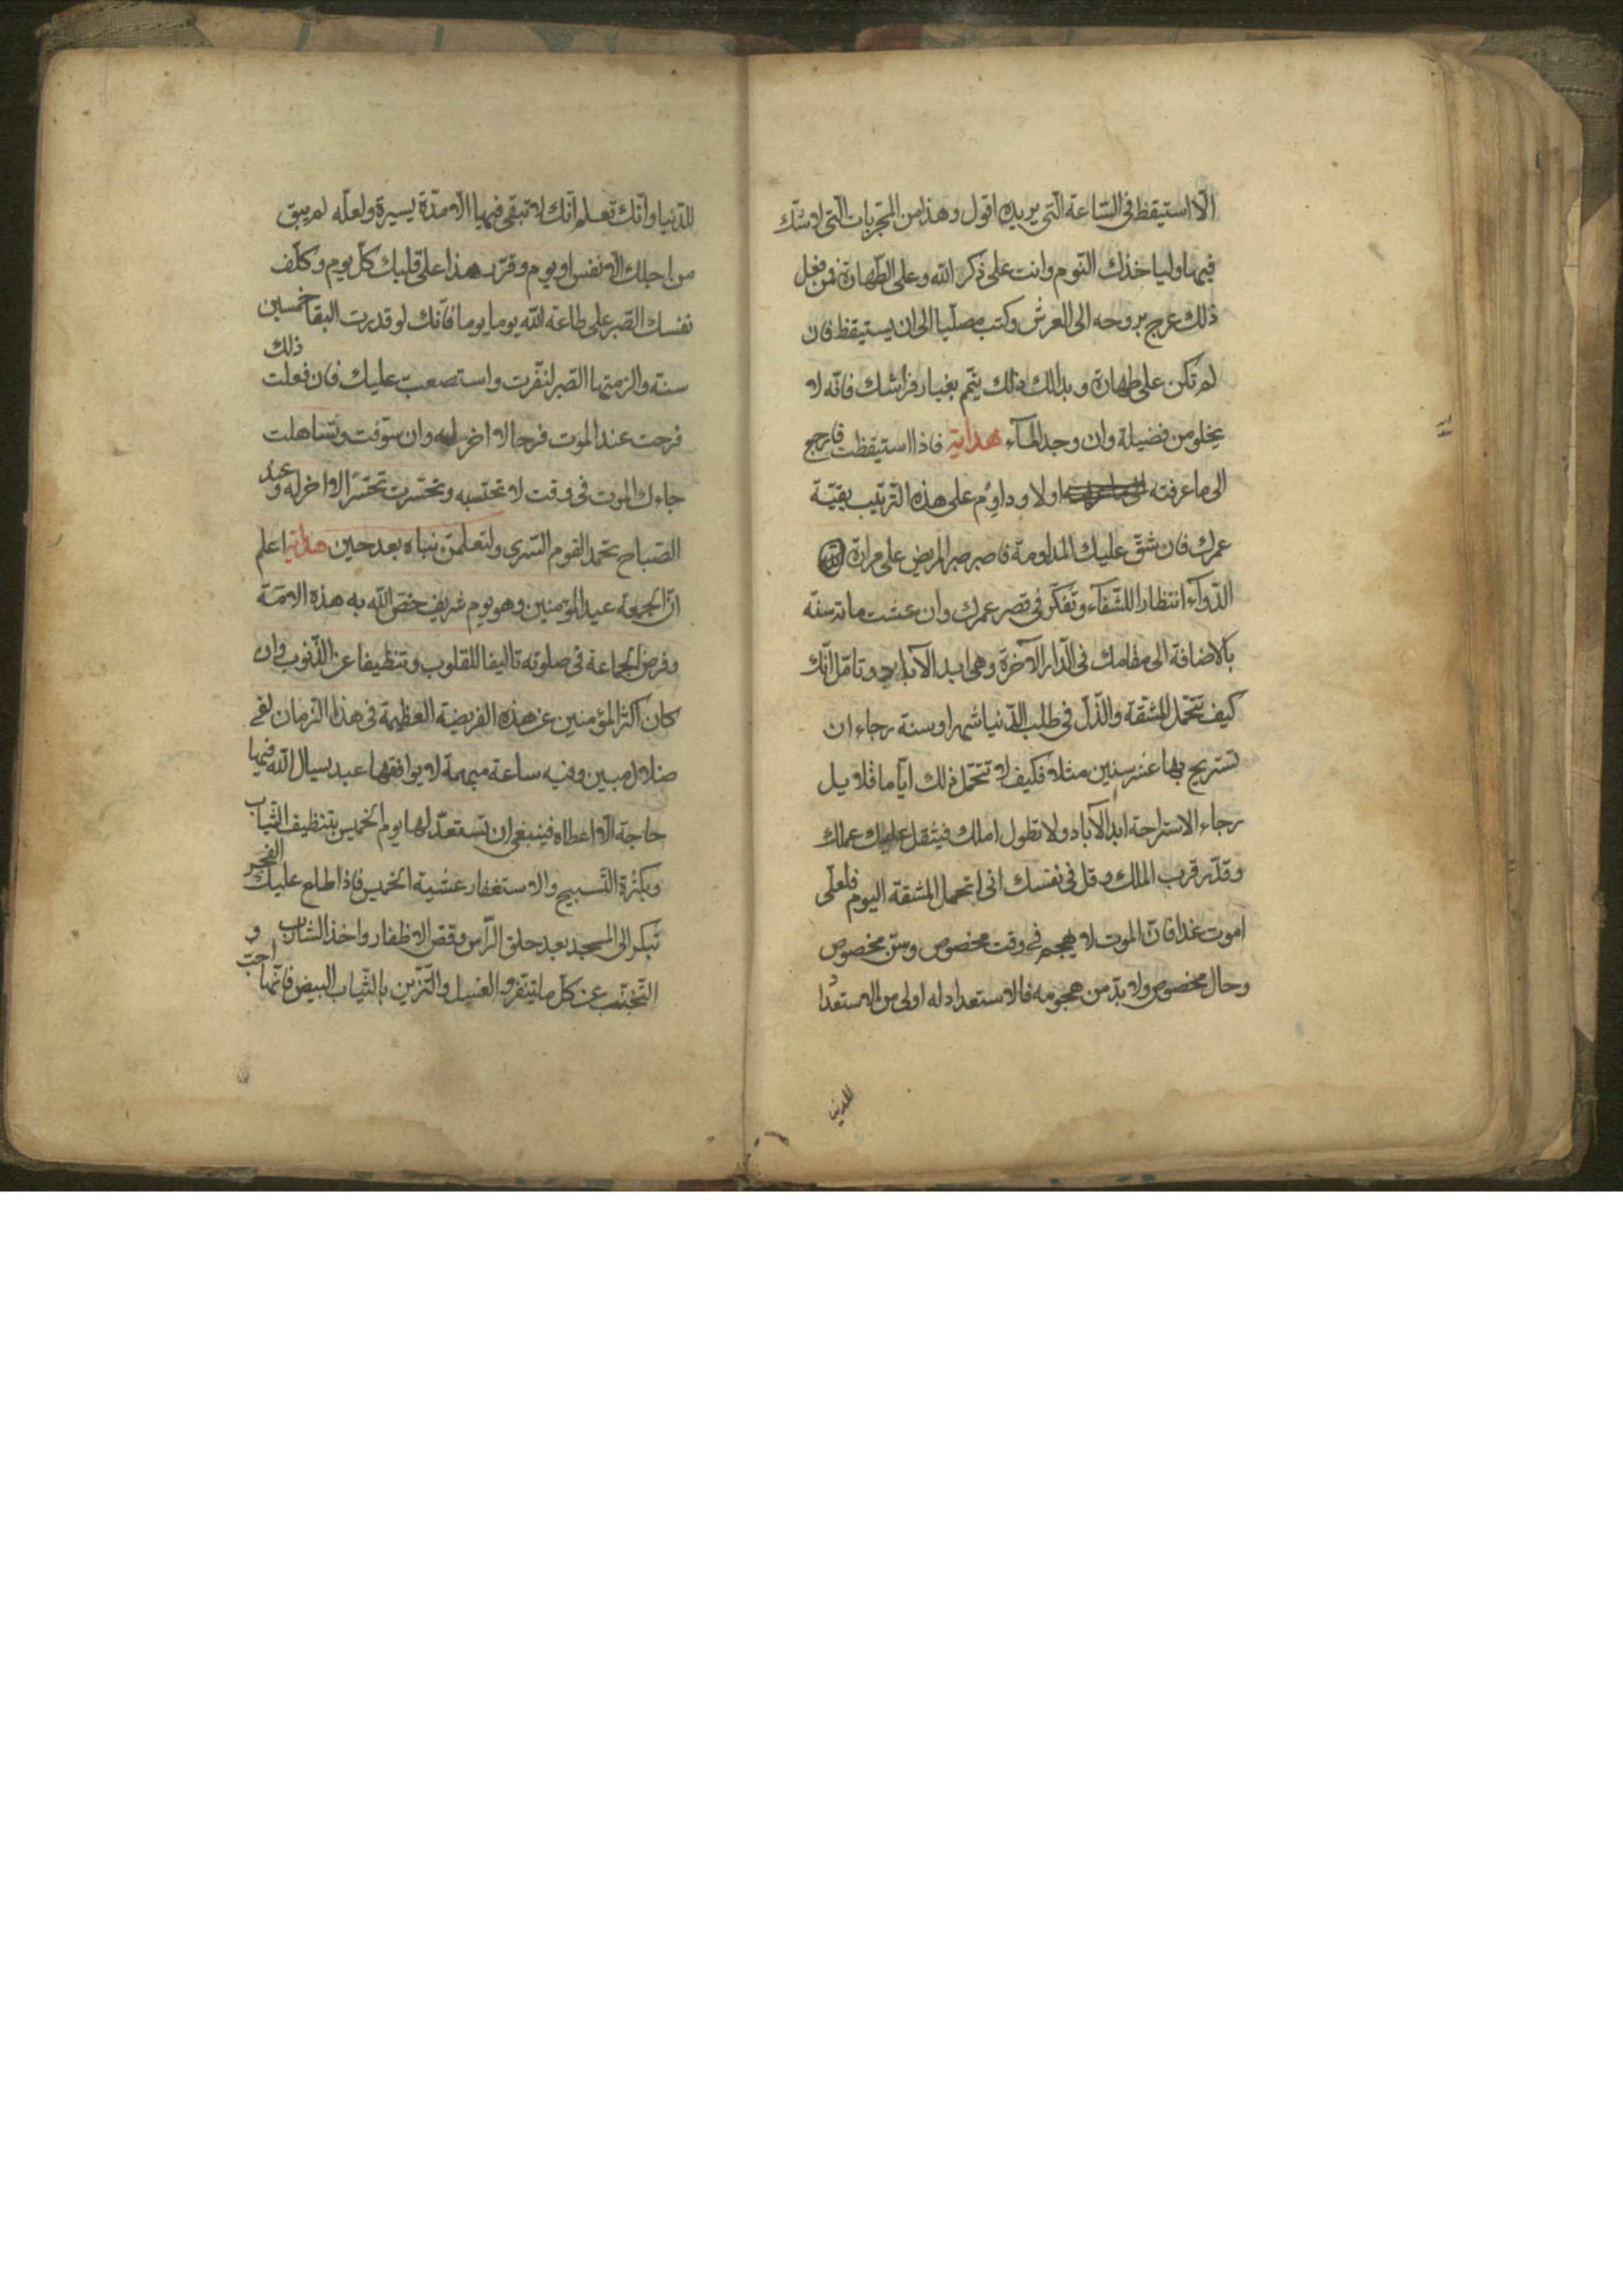 الّا استيقظ فى السّاعة الّتى يريده اقول وهذا من المجرّبات الّتى لا شكّ
فيها وليأخذك النّوم وانت على ذكر الله وعلى الطّهارة فمن فعل
ذلك عرج بروحه الى العرش وكتب مصلّيا الى ان يستيقظ فان
لم تكن على طهارة وبدا لك ذلك تيمّم بغبار فراشك فانّه لا
يخلو من فضيلة وان وجد المآء هداية فاذا استيقظت فارجع
الى ما عرفته اولا وداوم على هذه الترتيب بقيّة
عمرك فان شقّ عليك المداومة فاصبر صبر المريض على مرارة
الدّوآء انتظارا للشّفآء وتفكّر فى قصر عمرك وان عشت مائة سنة
بالاضافة الى مقامك فى الدّار الآخرة وهى ابد الآباد وتامّل انّك
كيف تتحمّل المشقة والذّلّ فى طلب الدّنيا شهرا وسنة رجاء ان
تستريح بها عشر سنين مثلا فكيف لا تتحمّل ذلك ايّاما قلايل
رجاء الاستراحة ابد الآباد ولا تطول املك فيثقل عليك عملك
وقدّر قرب الملك وقل فى نفسك انى اتحمل المشقة اليوم فلعلّى
اموت غدا فانّ الموت لا يهجم فى وقت مخصوص وسنّ مخصوص
وحال مخصوص ولا بدّ من هجومه فالاستعداد له اولى من الاستعداد
للدنيا
للدّنيا وانّك تعلم انّك لا تبقى فيها الّا مدّة يسيرة ولعلّه لم يبق
من اجلك الّا نفس او يوم وقرّر هذا على قلبك كلّ يوم وكلّف
نفسك الصّبر على طاعة الله يوما يوما فانّك لو قدرت البقا خمسين
سنة والزمتها الصّبر لنفرت واستصعبت عليك فان فعلت ذلك
فرحت عند الموت فرحا لا اخر له وان سوّفت وتساهلت
جاءك الموت فى وقت لا تحتسبه وتحسّرت تحسّرا لا اخر له وعند
الصّباح تحمد القوم السّرى ولتعلمنّ نباه بعد حين هداية اعلم
انّ الجمعة عيد المؤمنين وهو يوم شريف خصّ الله به هذه الامّة
وفرض الجماعة فى صلوته تاليفا للقلوب وتنظيفا عن الذّنوب وان
كان اكثر المؤمنين عن هذه الفريضة العظيمة فى هذا الزمان لفى
ضلال مبين وفيه ساعة مبهمة لا يوافقها عبد يسال الله فيها
حاجة الّا اعطاه فينبغى ان تستعدّ لها يوم الخميس بتنظيف الثياب
وبكثرة التّسبيح والاستغفار عشية الخميس فاذا طلع عليك الفجر
تبكر الى المسجد بعد حلق الرّأس وقصّ الاظفار واخذ الشارب و
التّجنّب عن كلّ ما ينفّر والغسل والتّزيّن بالثّياب البيض فانّها احبّ